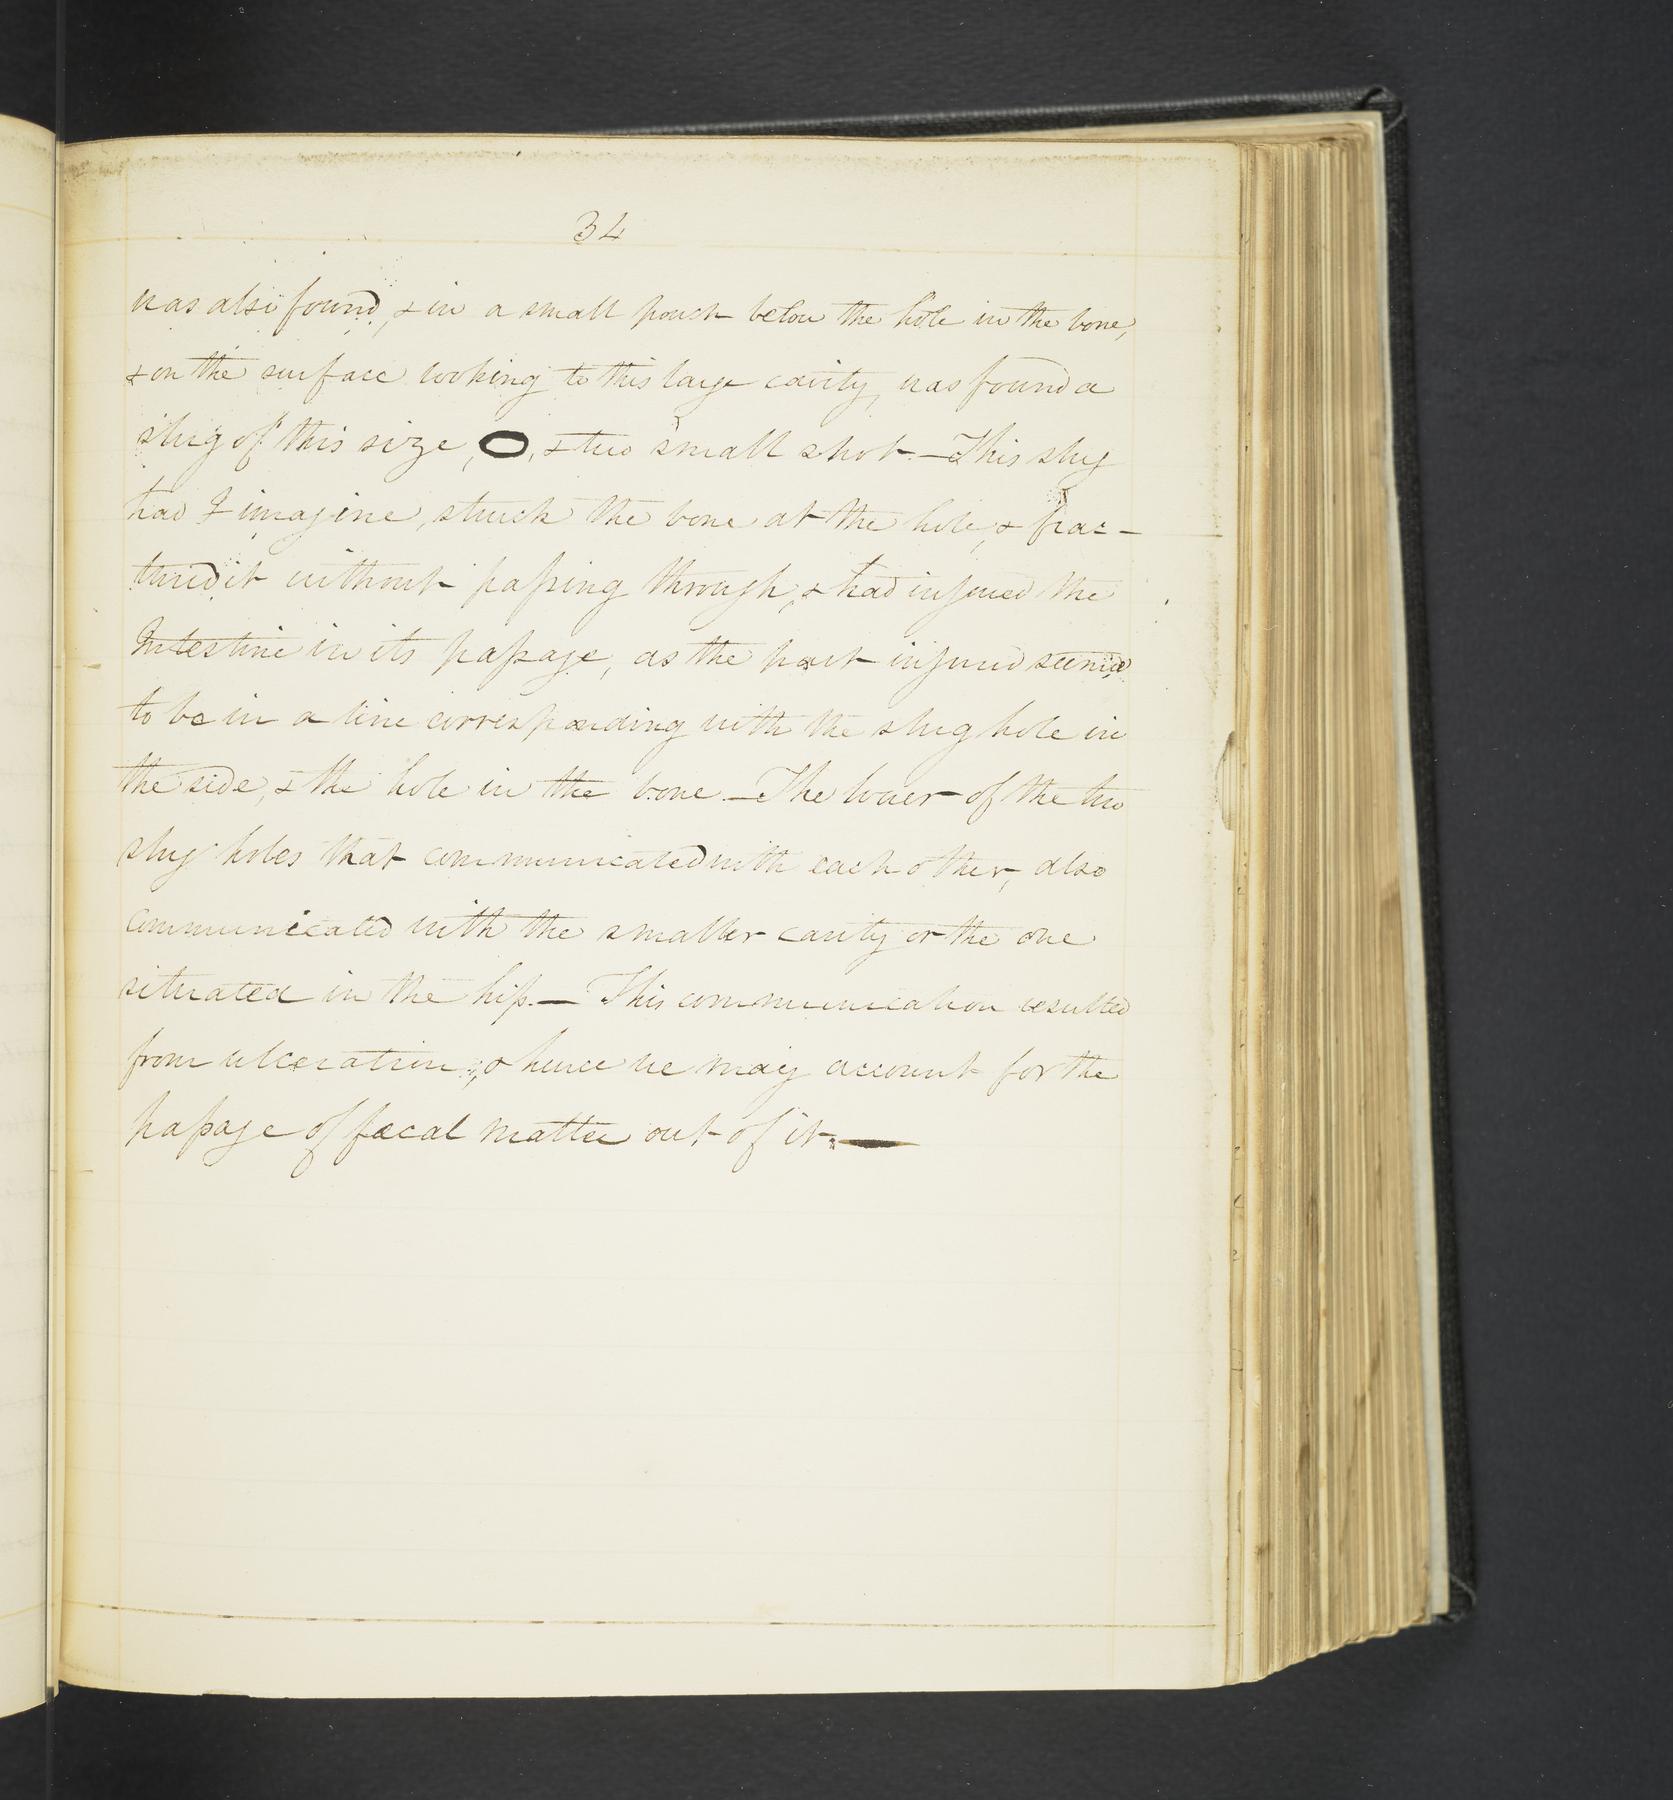 34
was also found, & in a small pouch below the hole in the bone,
& on the surface looking to this large cavity, was found a
slug of this size, O, & two small shot. — This slug
had I imagine, struck the bone at the hole, & frac-
tured it without passing through, & had injured the
Intestine in its passage, as the part injured seemed
to be in a line corresponding with the slug hole in
the side, & the hole in the bone. — The lower of the two
slug holes that communicated with each other, also
communicated with the smaller cavity or the one
situated in the hip. — This communication resulted
from ulceration, & hence we may account for the
passage of fœcal matter out of it. —